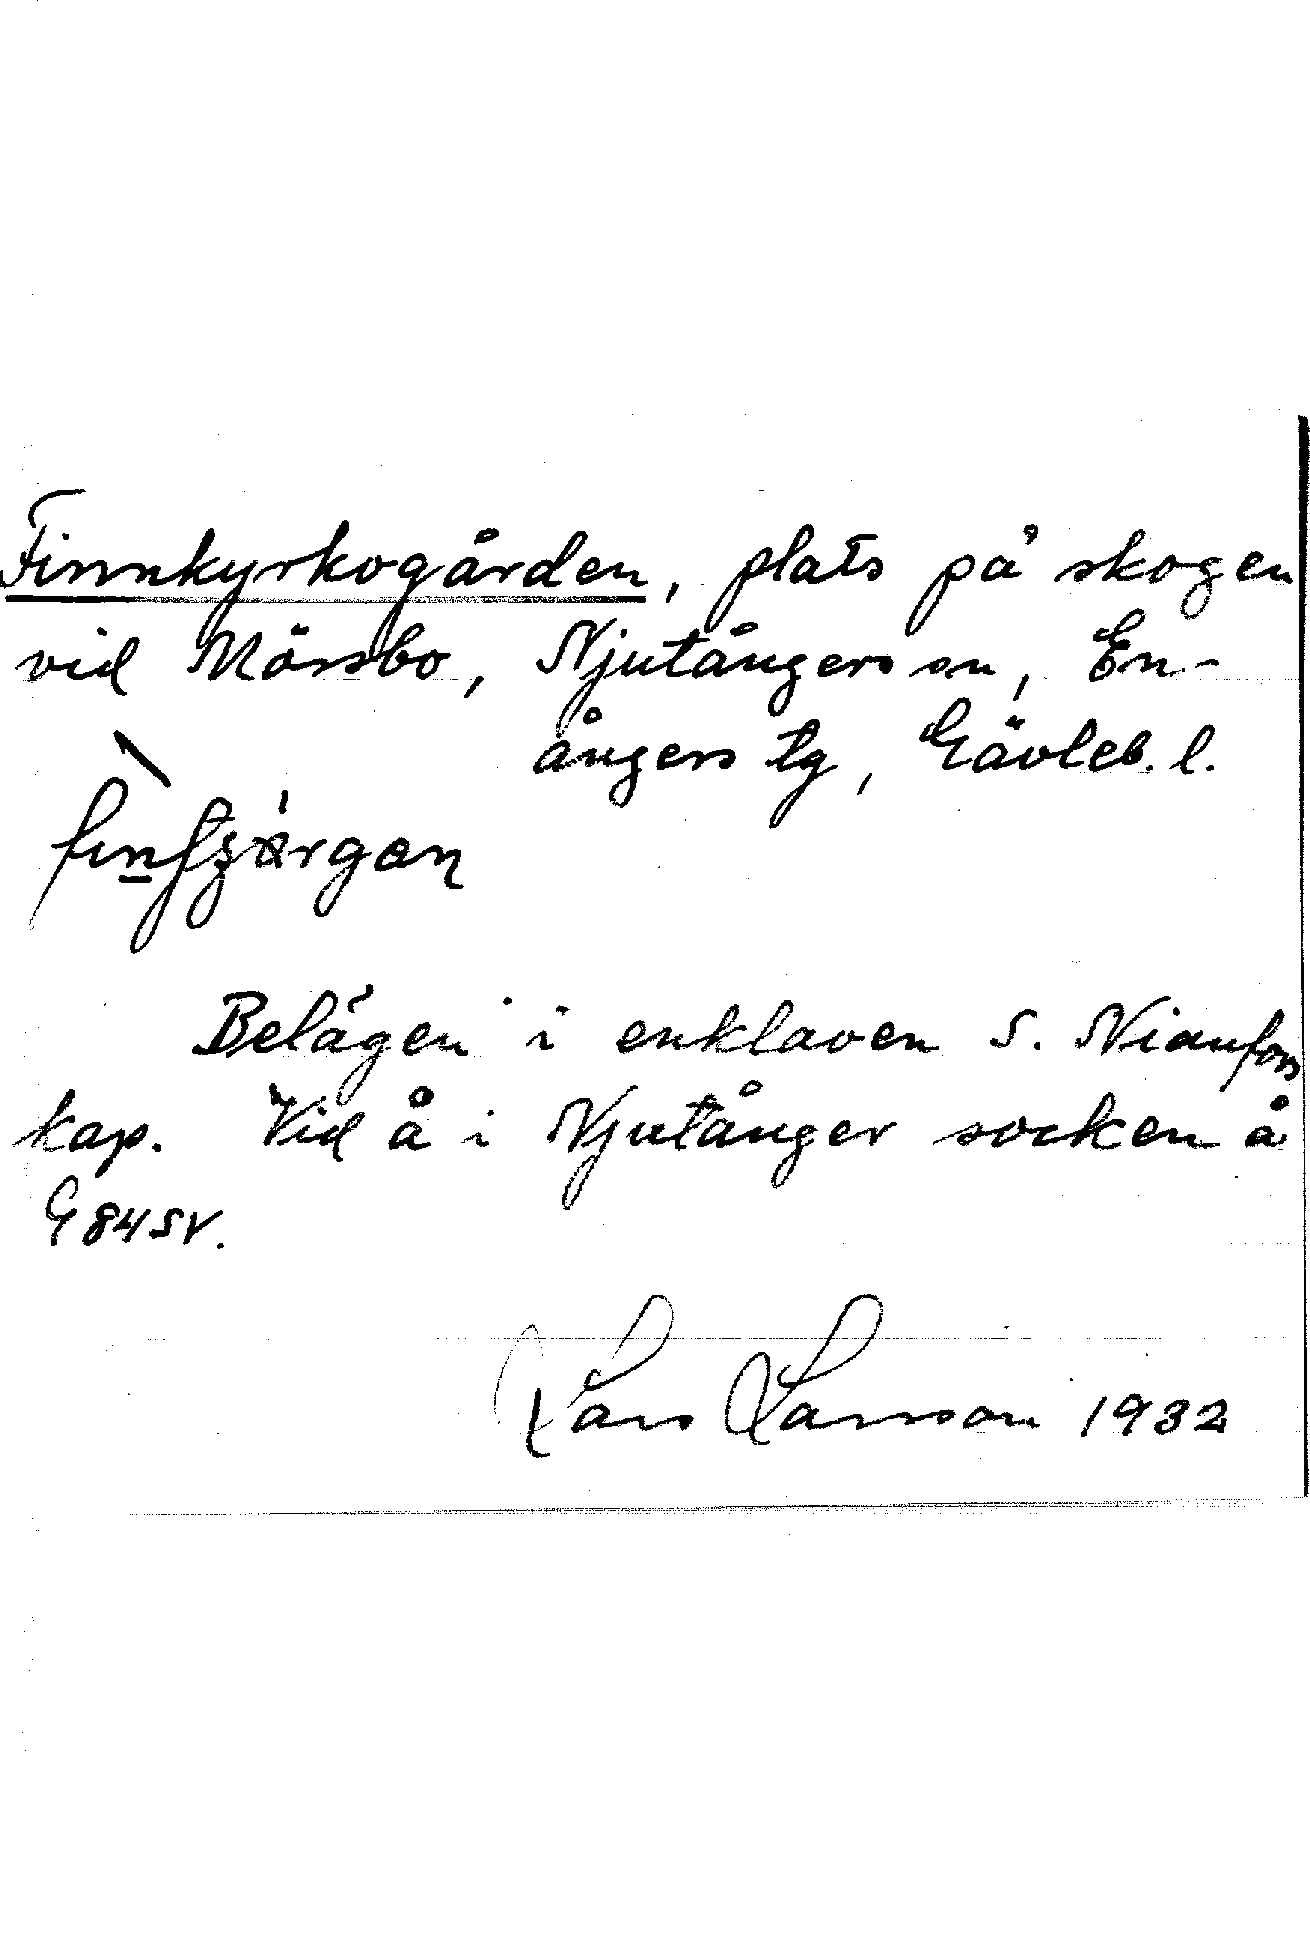 Finnkyrkogården, plats på skogen
vid Mössbo, Njutångers sn, En-
ångers tg, Gävleb. l.
Belägen i enklaven S. Nianfors
kap. Vid å i Njutånger socken å
G 84 SV.
Lars Larsson 1932